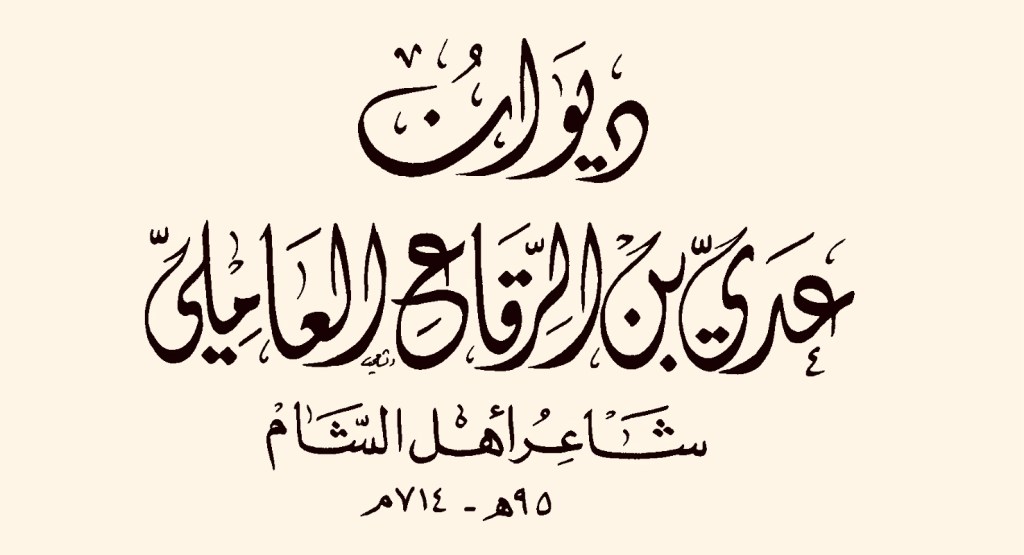 ديوان
عدي بن الرقاع العاملي
شاعر أهل الشام
٩٥هـ - ٧١٤م